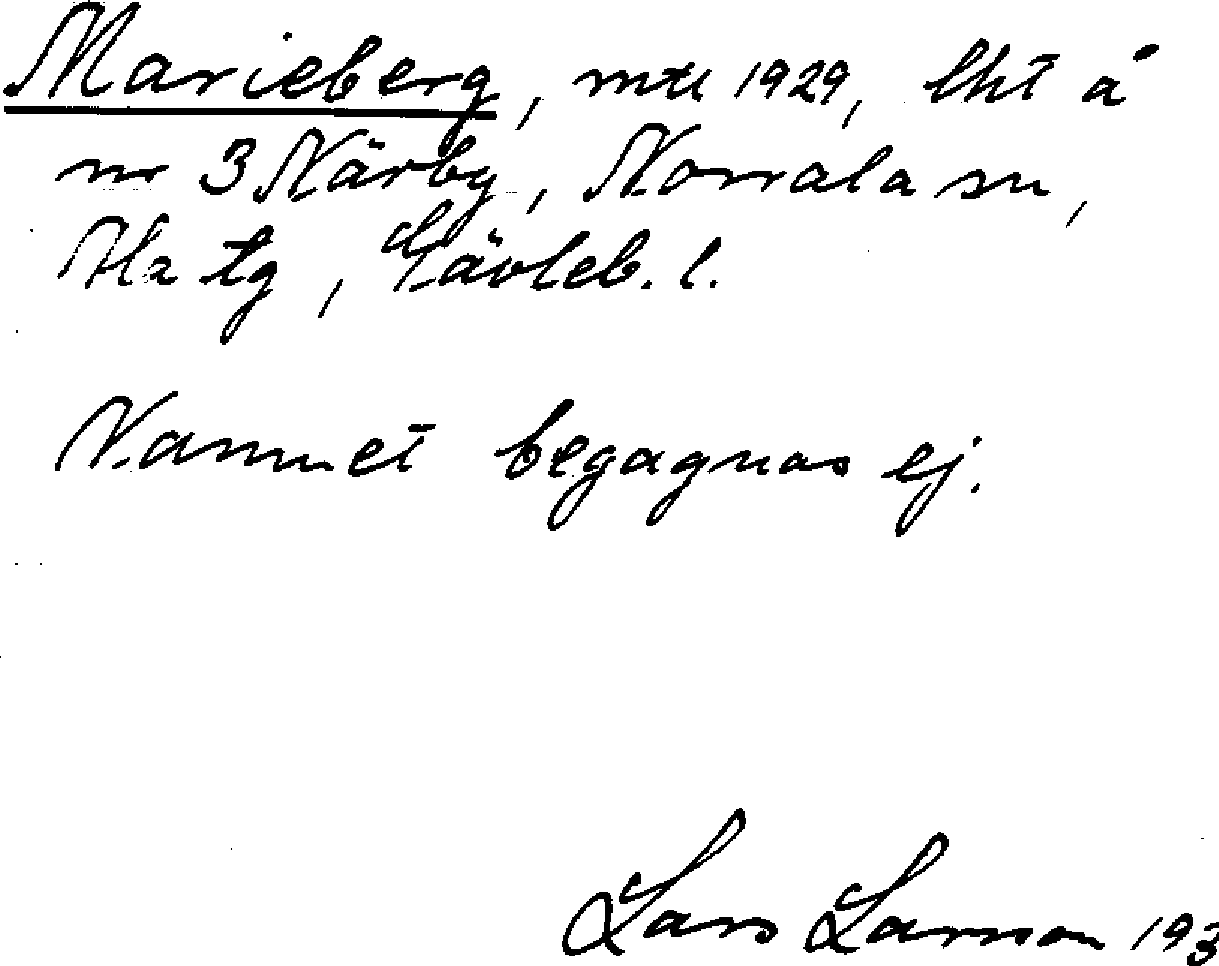 Marieberg, mtl 1929, lht å
nr 3 Närby, Norrala sn,
Ala tg, Gävleb. l.
Namnet begagnas ej.
Lars Larsson 193